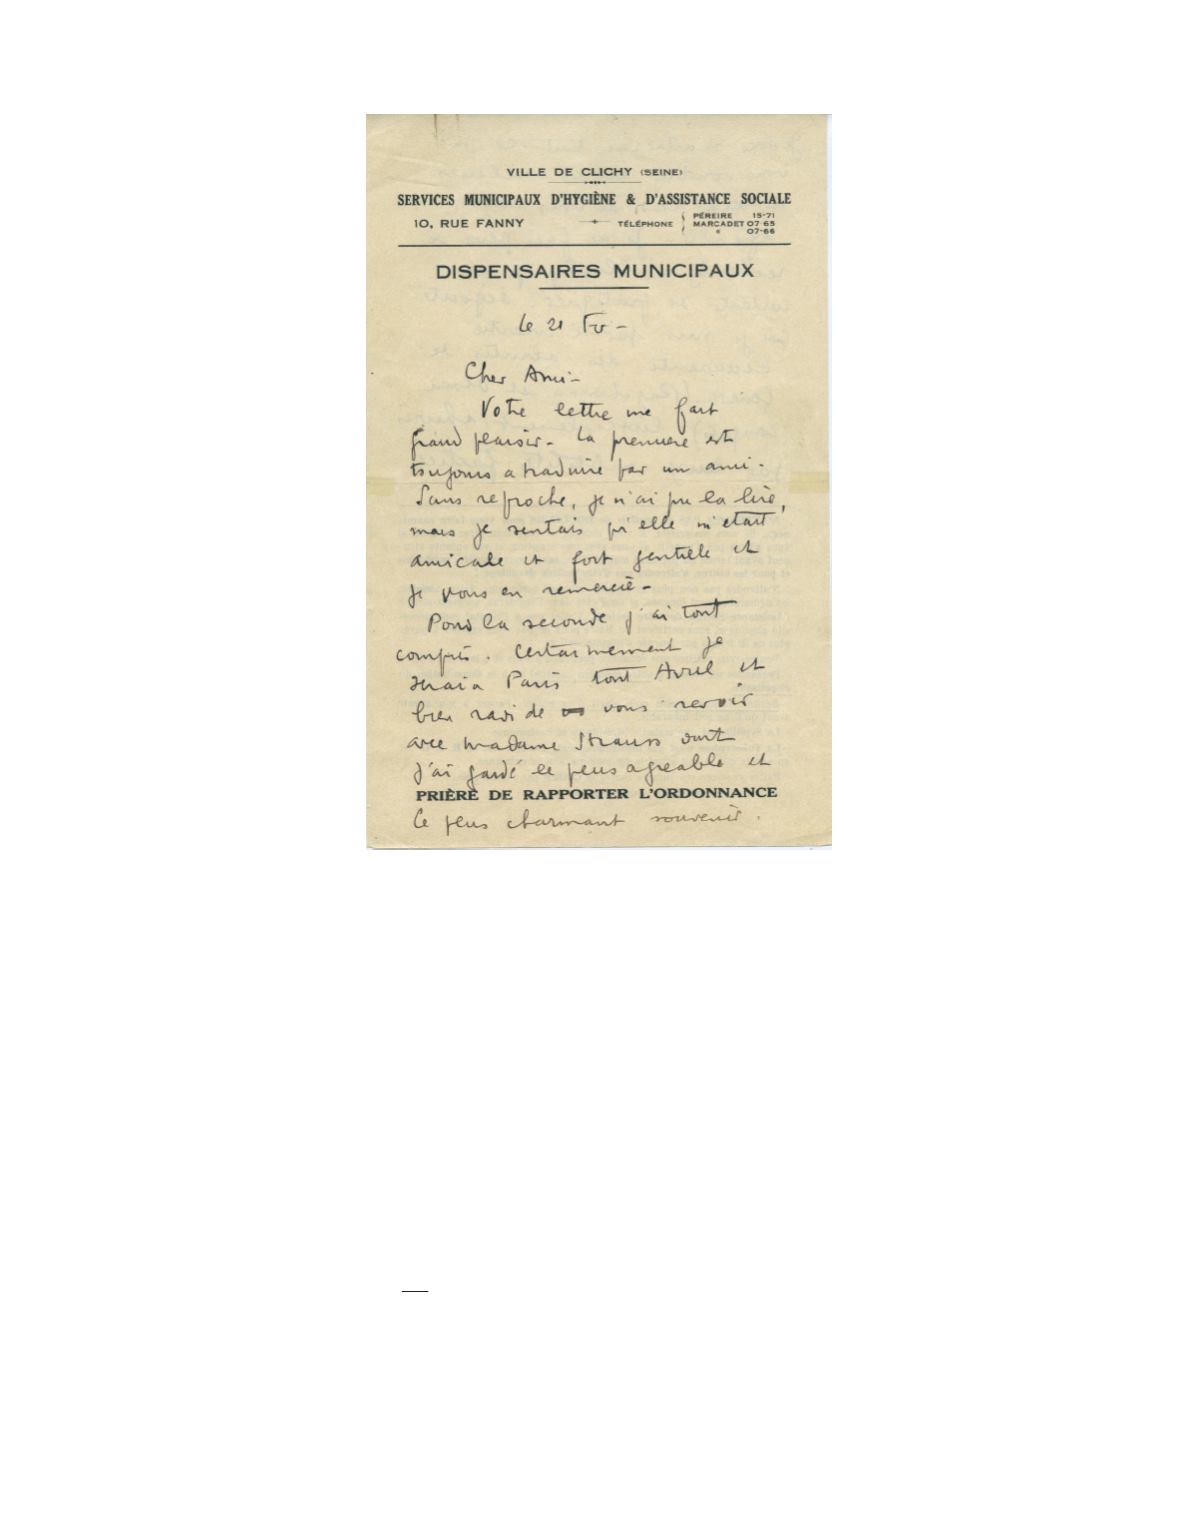 VILLE DE CLICHY (SEINE)
SERVICES MUNICIPAUX D'HYGIÈNE & D'ASSISTANCE SOCIALE
10, RUE FANNY TÉLÉPHONE { PÉREIRE 15-71
MARCADET 07-65
« 07-66
DISPENSAIRES MUNICIPAUX
Le 21 Fv -
Cher Ami -
Votre lettre me fait
grand plaisir - La premiere est
toujours a traduire par un ami -
Sans reproche, je n'ai pu la lire,
mais je sentais qu'elle m'etait
amicale et fort gentille et
je vous en remercie -
Pour la seconde j'ai tout
compris. Certainement je
serai a Paris tout Avril et
bien ravi de vous revoir
avec madame Strauss dont
j'ai gardé le plus agreable et
PRIÈRE DE RAPPORTER L'ORDONNANCE
le plus charmant souvenir.